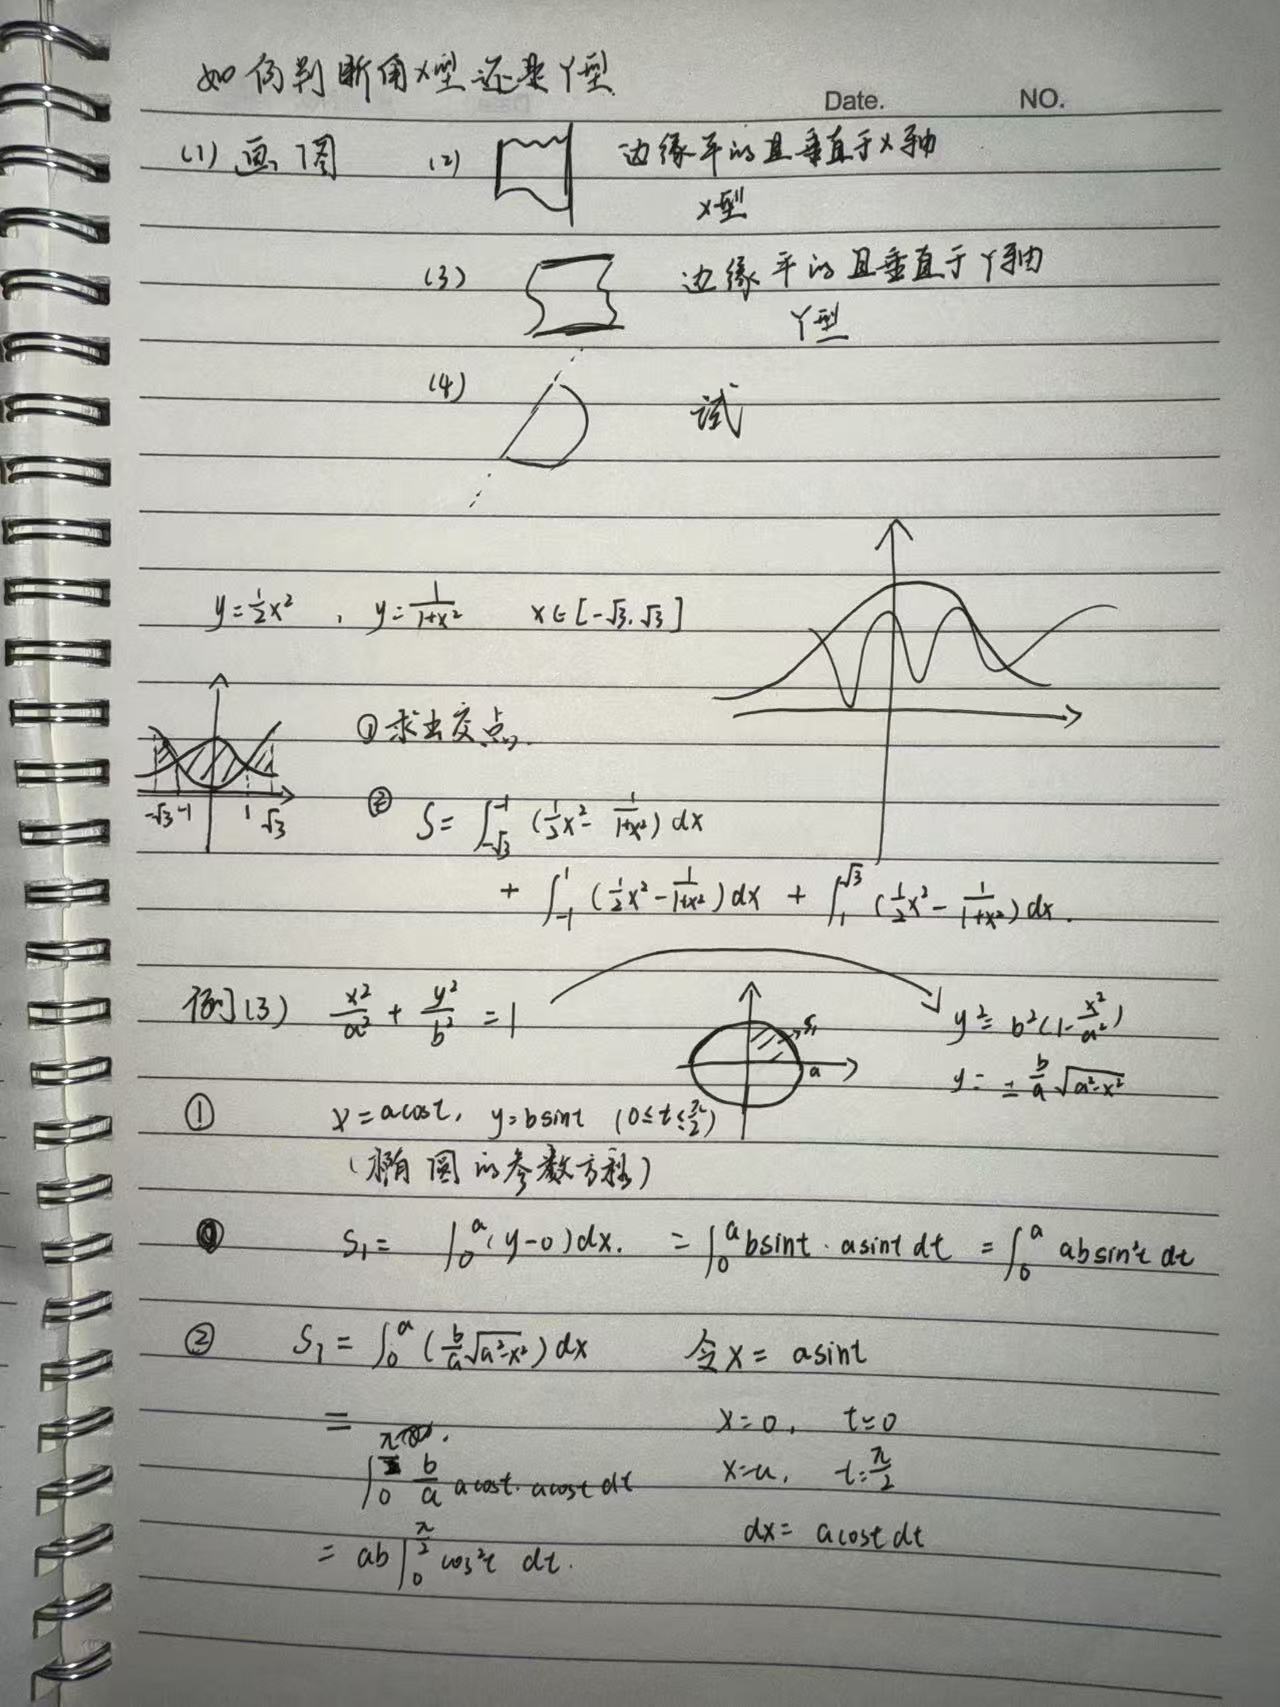 如何判断用X型还是Y型
Date. NO.
(1) 画图 (2) 边缘平的且垂直于X轴
X型
(3) 边缘平的且垂直于Y轴
Y型
(4) 试
y=½x² , y=1/(1+x²) x∈[-√3,√3]
① 求出交点.
-√3 -1 1 √3
② S=∫_{-√3}^{-1}(½x²-1/(1+x²))dx
+∫_{-1}^{1}(½x²-1/(1+x²))dx+∫_{1}^{√3}(½x²-1/(1+x²))dx.
例(3) x²/a²+y²/b²=1 S₁ a y²=b²(1-x²/a²)
y=±b/a√(a²-x²)
① x=acost, y=bsint (0≤t≤π/2)
(椭圆的参数方程)
S₁=∫_0^a(y-0)dx. =∫_0^a bsint·asint dt=∫_0^a absin²t dt
② S₁=∫_0^a(b/a√(a²-x²))dx 令x=asint
= x=0, t=0
∫_0^{π/2} b/a acost·acost dt x=a, t=π/2
=ab∫_0^{π/2}cos²t dt. dx=acost dt